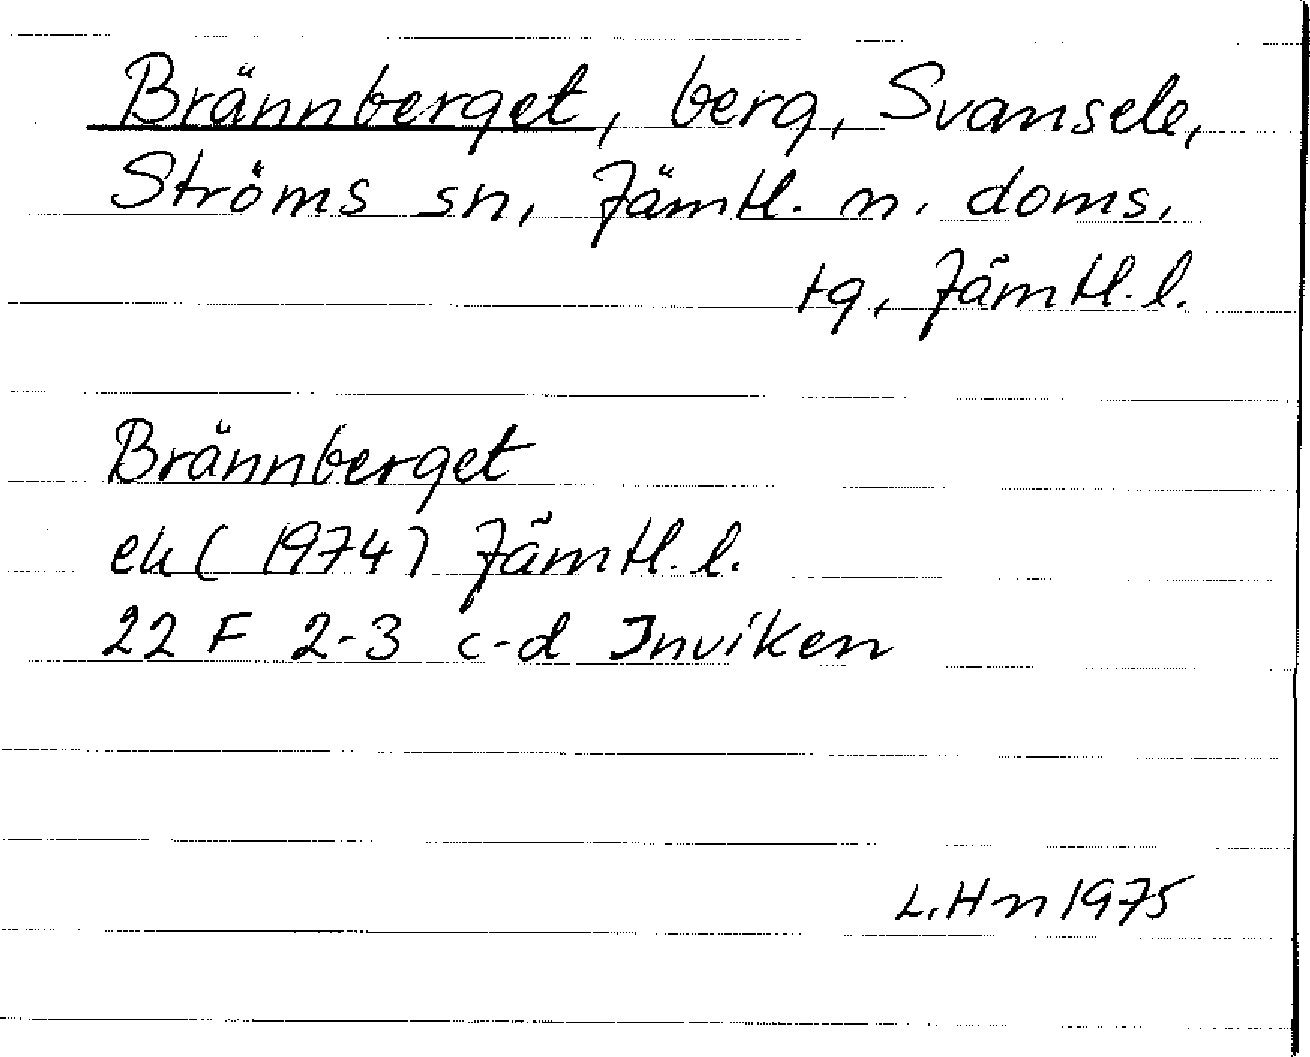 Brännberget, berg, Svansele,
Ströms sn, Jämtl. n. doms.
tg, Jämtl. l.
Brännberget
ek (1974) Jämtl. l.
22 F 2-3 c-d Inviken
L. Hn 1975